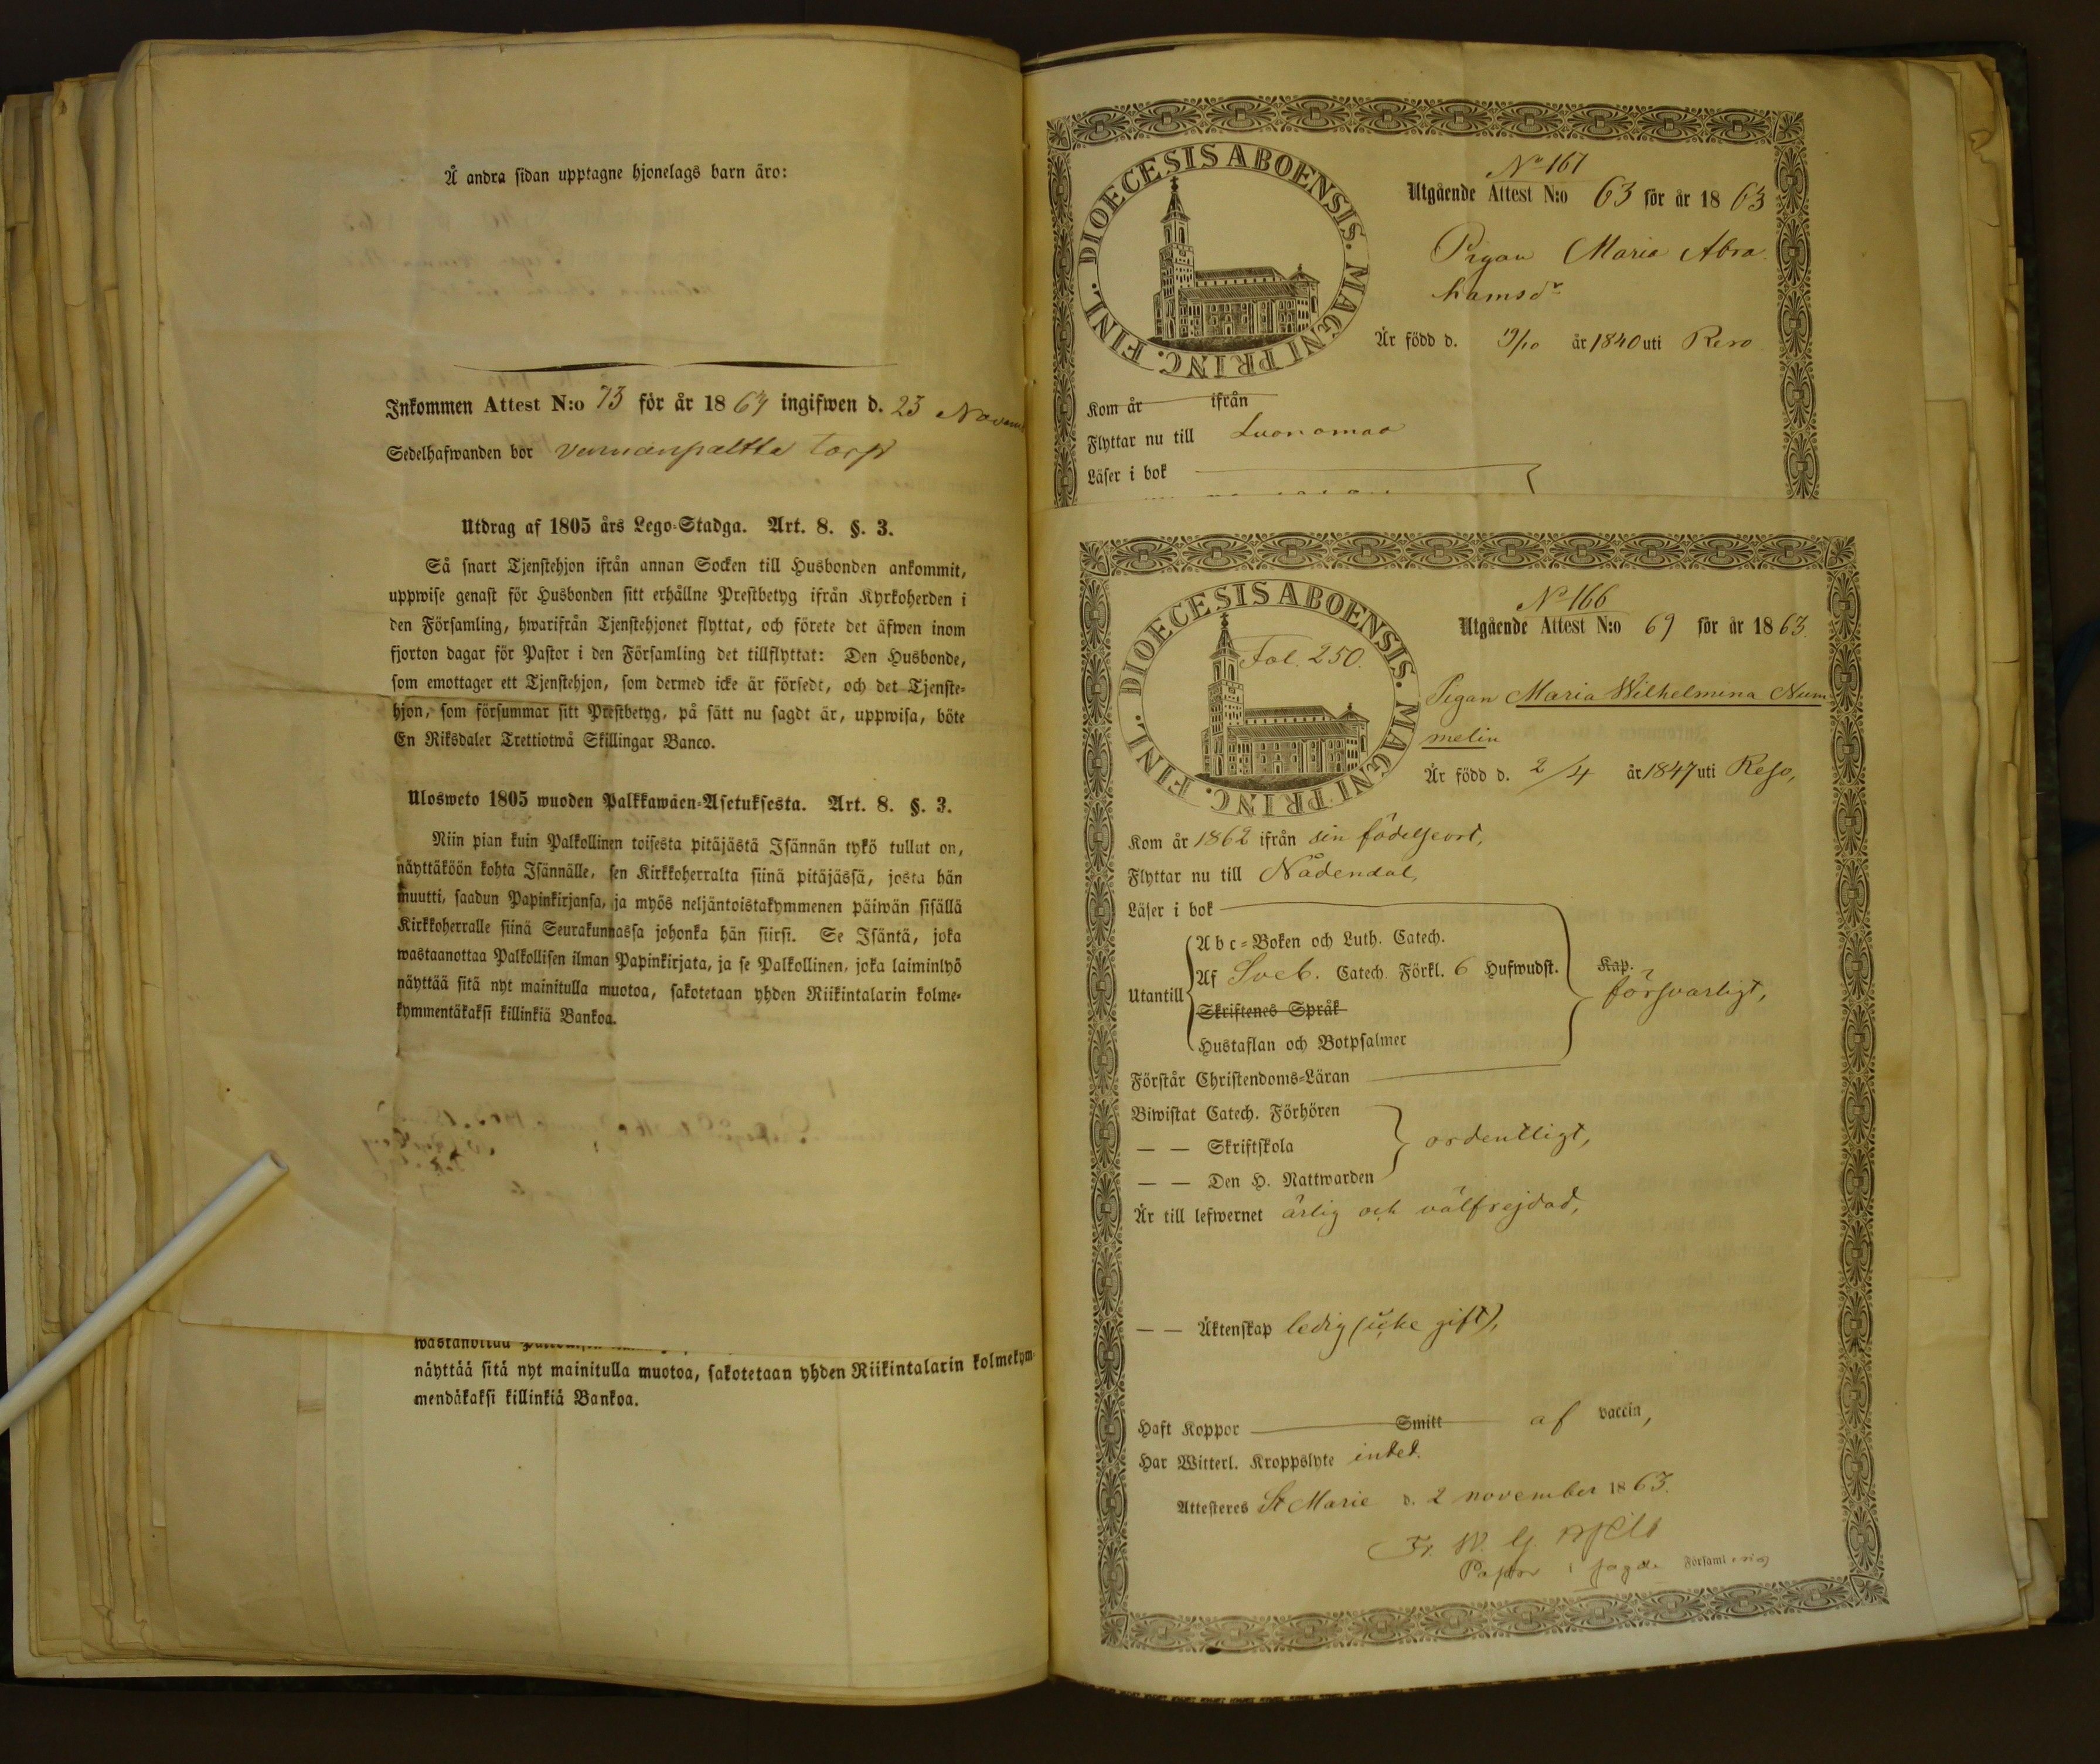 Å andra sidan upptagne hjonelags barn äro:
Inkommen Attest N:o 73 för år 18 ingifwen d. 23
Sedelhafwanden bor torp
Utdrag af 1805 års Lego-Stadga. Art. 8. §. 3.
Så snart Tjenstehjon ifrån annan Socken till Husbonden ankommit,
uppwise genast för Husbonden sitt erhållne Prestbetyg ifrån Kyrkoherden i
den Församling, hwarifrån Tjenstehjonet flyttat, och förete det äfwen inom
fjorton dagar för Pastor i den Församling det tillflyttat: Den Husbonde,
som emottager ett Tjenstehjon, som dermed icke är försedt, och det Tjenste-
hjon, som försummar sitt Prestbetyg, på sätt nu sagdt är, uppwisa, böte
En Riksdaler Trettiotwå Skillingar Banco.
Ulosweto 1805 wuoden Palkkawäen-Asetuksesta. Art. 8. §. 3.
Niin pian kuin Palkollinen toisesta pitäjästä Isännän tykö tullut on,
näyttäköön kohta Isännälle, sen Kirkkoherralta siinä pitäjässä, josta hän
muutti, saadun Papinkirjansa, ja myös neljäntoistakymmenen päiwän sisällä
Kirkkoherralle siinä Seurakunnassa johonka hän siirsi. Se Isäntä, joka
wastaanottaa Palkollisen ilman Papinkirjata, ja se Palkollinen, joka laiminlyö
näyttää sitä nyt mainitulla muotoa, sakotetaan yhden Riikintalarin kolme-
kymmentäkaksi killinkiä Bankoa.
näyttää sitä nyt mainitulla muotoa, sakotetaan yhden Riikintalarin kolmekym-
mendäkaksi killinkiä Bankoa.
DIOECESIS ABOENSIS. MAGNI PRINC. FINL.
No 167
Utgående Attest N:o 63 för år 1863
Pigan Maria Abra
hamsdr
Är född d. 19/10 år 1840 uti Reso
Kom år ifrån
Flyttar nu till Luonomaa
Läser i bok
DIOECESIS ABOENSIS. MAGNI PRINC. FINL.
Fol. 250.
No 166
Utgående Attest N:o 69 för år 1863.
Pigan Maria Wilhelmina Num
melin
Är född d. 2/4 år 1847 uti Reso,
Kom år 1862 ifrån sin födelseort,
Flyttar nu till Nådendal,
Läser i bok
Utantill
Abc-Boken och Luth. Catech.
Af Sveb. Catech. Förkl. 6 Hufwudst.
Skriftenes Språk
Hustaflan och Botpsalmer
Kap.
försvarligt,
Förstår Christendoms-Läran
Biwistat Catech. Förhören
— — Skriftskola
— — Den H. Nattwarden
ordentligt,
Är till lefwernet ärlig och välfrejdad,
— — Äktenskap ledig (icke gift),
Haft Koppor Smitt af vaccin,
Har Witterl. Kroppslyte intet.
Attesteres St Marie d. 2 november 1863.
Fr. W. G.
Pastor i sagde Församling